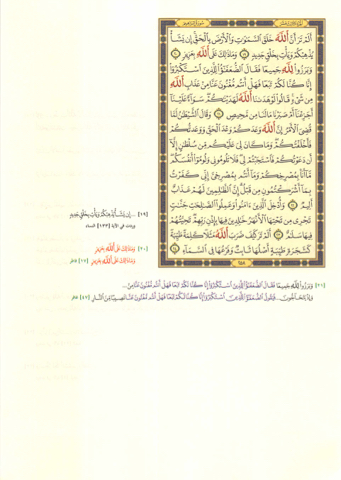 أَلَمْ تَرَ أَنَّ اللَّهَ خَلَقَ السَّمَٰوَٰتِ وَالْأَرْضَ بِالْحَقِّ إِن يَشَأْ
يُذْهِبْكُمْ وَيَأْتِ بِخَلْقٍ جَدِيدٍ ۝١٩ وَمَا ذَٰلِكَ عَلَى اللَّهِ بِعَزِيزٍ ۝٢٠
وَبَرَزُوا لِلَّهِ جَمِيعًا فَقَالَ الضُّعَفَٰٓؤُا لِلَّذِينَ اسْتَكْبَرُوٓا
إِنَّا كُنَّا لَكُمْ تَبَعًا فَهَلْ أَنتُم مُّغْنُونَ عَنَّا مِنْ عَذَابِ اللَّهِ
مِن شَىْءٍ قَالُوا لَوْ هَدَىٰنَا اللَّهُ لَهَدَيْنَٰكُمْ سَوَآءٌ عَلَيْنَآ
أَجَزِعْنَآ أَمْ صَبَرْنَا مَا لَنَا مِن مَّحِيصٍ ۝٢١ وَقَالَ الشَّيْطَٰنُ لَمَّا
قُضِىَ الْأَمْرُ إِنَّ اللَّهَ وَعَدَكُمْ وَعْدَ الْحَقِّ وَوَعَدتُّكُمْ
فَأَخْلَفْتُكُمْ وَمَا كَانَ لِىَ عَلَيْكُم مِّن سُلْطَٰنٍ إِلَّآ
أَن دَعَوْتُكُمْ فَاسْتَجَبْتُمْ لِى فَلَا تَلُومُونِى وَلُومُوٓا أَنفُسَكُم
مَّآ أَنَا۠ بِمُصْرِخِكُمْ وَمَآ أَنتُم بِمُصْرِخِىَّ إِنِّى كَفَرْتُ
بِمَآ أَشْرَكْتُمُونِ مِن قَبْلُ إِنَّ الظَّٰلِمِينَ لَهُمْ عَذَابٌ
أَلِيمٌ ۝٢٢ وَأُدْخِلَ الَّذِينَ ءَامَنُوا وَعَمِلُوا الصَّٰلِحَٰتِ جَنَّٰتٍ
تَجْرِى مِن تَحْتِهَا الْأَنْهَٰرُ خَٰلِدِينَ فِيهَا بِإِذْنِ رَبِّهِمْ تَحِيَّتُهُمْ
فِيهَا سَلَٰمٌ ۝٢٣ أَلَمْ تَرَ كَيْفَ ضَرَبَ اللَّهُ مَثَلًا كَلِمَةً طَيِّبَةً
كَشَجَرَةٍ طَيِّبَةٍ أَصْلُهَا ثَابِتٌ وَفَرْعُهَا فِى السَّمَآءِ ۝٢٤
٢٥٨
[١٩] ... إِن يَشَأْ يُذْهِبْكُمْ وَيَأْتِ بِخَلْقٍ جَدِيدٍ
[١٣٣] النساء
[٢٠] وَمَا ذَٰلِكَ عَلَى اللَّهِ بِعَزِيزٍ
وَمَا ذَٰلِكَ عَلَى اللَّهِ بِعَزِيزٍ [١٧] فاطر
[٢١] وَبَرَزُوا لِلَّهِ جَمِيعًا فَقَالَ الضُّعَفَٰٓؤُا لِلَّذِينَ اسْتَكْبَرُوٓا إِنَّا كُنَّا لَكُمْ تَبَعًا فَهَلْ أَنتُم مُّغْنُونَ عَنَّا مِنْ ...
وَإِذْ يَتَحَآجُّونَ ... فَيَقُولُ الضُّعَفَٰٓؤُا لِلَّذِينَ اسْتَكْبَرُوٓا إِنَّا كُنَّا لَكُمْ تَبَعًا فَهَلْ أَنتُم مُّغْنُونَ عَنَّا نَصِيبًا مِّنَ النَّارِ [٤٧] غافر